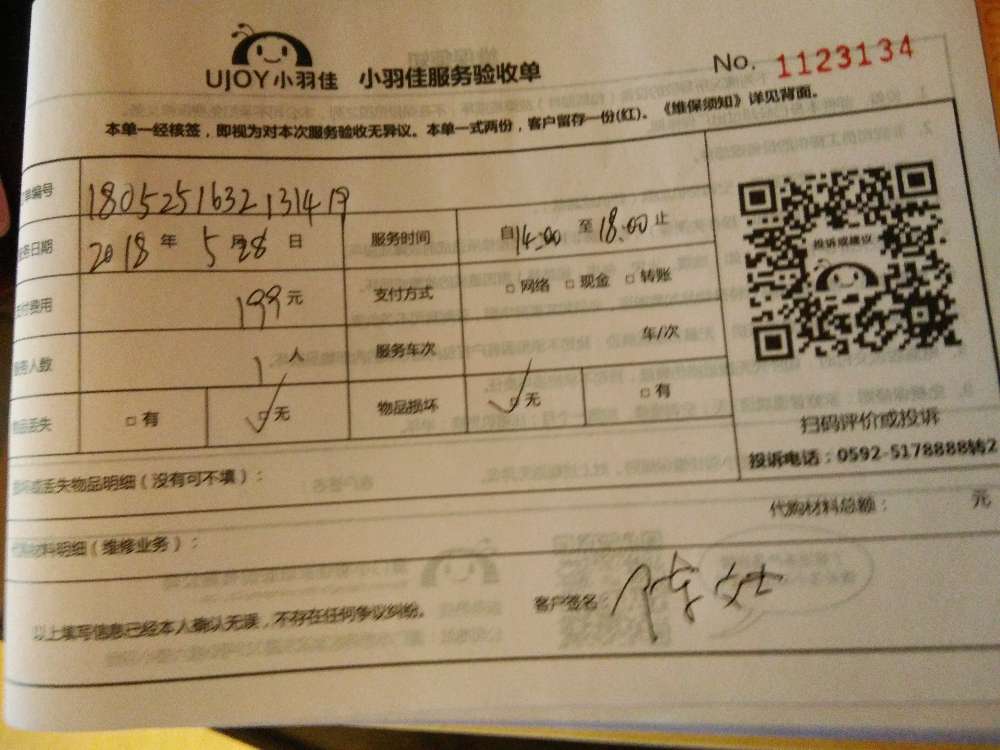 UJOY小羽佳 小羽佳服务验收单 No. 1123134
本单一经核签，即视为对本次服务验收无异议。本单一式两份，客户留存一份(红)。《维保须知》详见背面。
单编号 180525163213149
务日期 2018 年 5 月 28 日 服务时间 自14:00 至18:00止
付费用 199元 支付方式 □网络 □现金 □转账
务人数 1人 服务车次 车/次
品丢失 □有 □无 物品损坏 □无 □有
投诉或建议
扫码评价或投诉
投诉电话：0592-5178888转2
丢失物品明细（没有可不填）：
代购材料总额： 元
材料明细（维修业务）：
以上填写信息已经本人确认无误，不存在任何争议纠纷。 客户签名